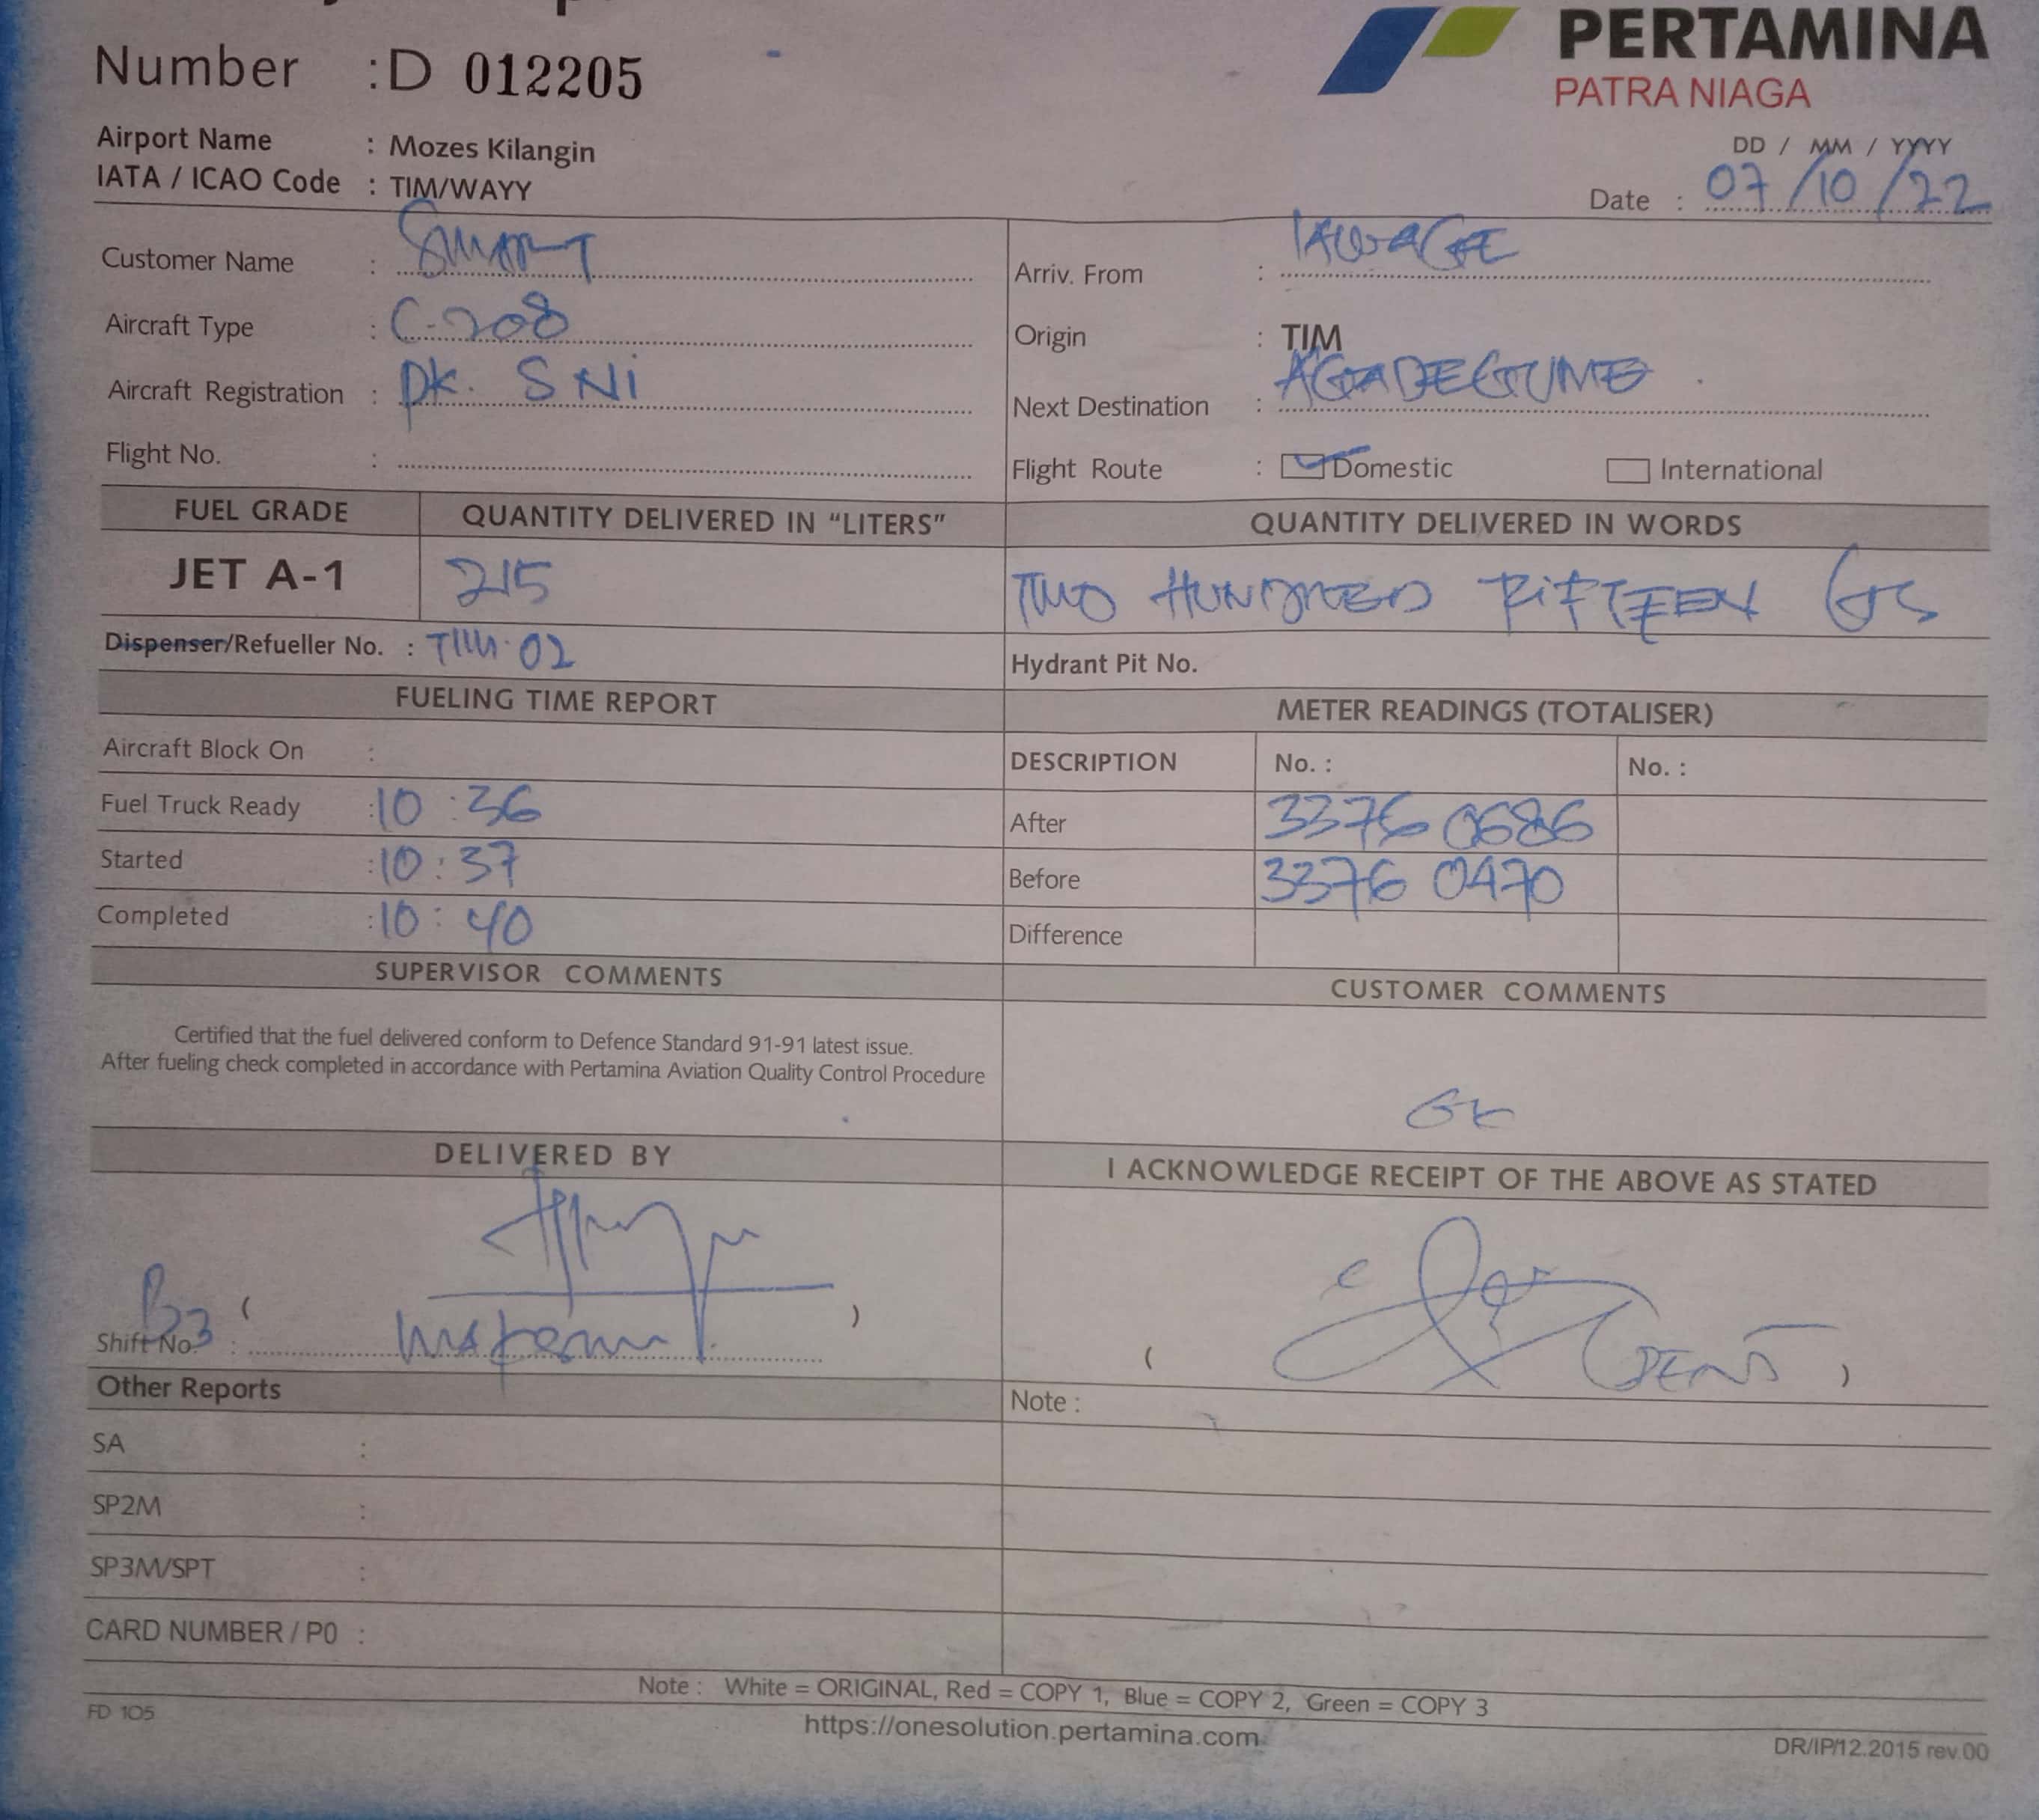 PERTAMINA
PATRA NIAGA
Number : D 012205
Airport Name : Mozes Kilangin
IATA / ICAO Code : TIM/WAYY
DD / MM / YYYY
Date : 07/10/22
Customer Name : SMART
Arriv. From :
Aircraft Type : C-208
Origin : TIM
Aircraft Registration : PK. SNi
Next Destination : AGADEGUME
Flight No. :
Flight Route : Domestic International
FUEL GRADE QUANTITY DELIVERED IN “LITERS” QUANTITY DELIVERED IN WORDS
JET A-1 215 TWO HUNDRED FiFTEEN
Dispenser/Refueller No. : TIM-02 Hydrant Pit No.
FUELING TIME REPORT METER READINGS (TOTALISER)
Aircraft Block On : DESCRIPTION No. : No. :
Fuel Truck Ready : 10:36 After 3376 0686
Started : 10:37 Before 3376 0470
Completed : 10:40 Difference
SUPERVISOR COMMENTS CUSTOMER COMMENTS
Certified that the fuel delivered conform to Defence Standard 91-91 latest issue.
After fueling check completed in accordance with Pertamina Aviation Quality Control Procedure
DELIVERED BY I ACKNOWLEDGE RECEIPT OF THE ABOVE AS STATED
( )
Shift No. : B3
( )
Other Reports Note :
SA :
SP2M :
SP3M/SPT :
CARD NUMBER / P0 :
Note : White = ORIGINAL, Red = COPY 1, Blue = COPY 2, Green = COPY 3
FD 105 https://onesolution.pertamina.com DR/IP/12.2015 rev.00